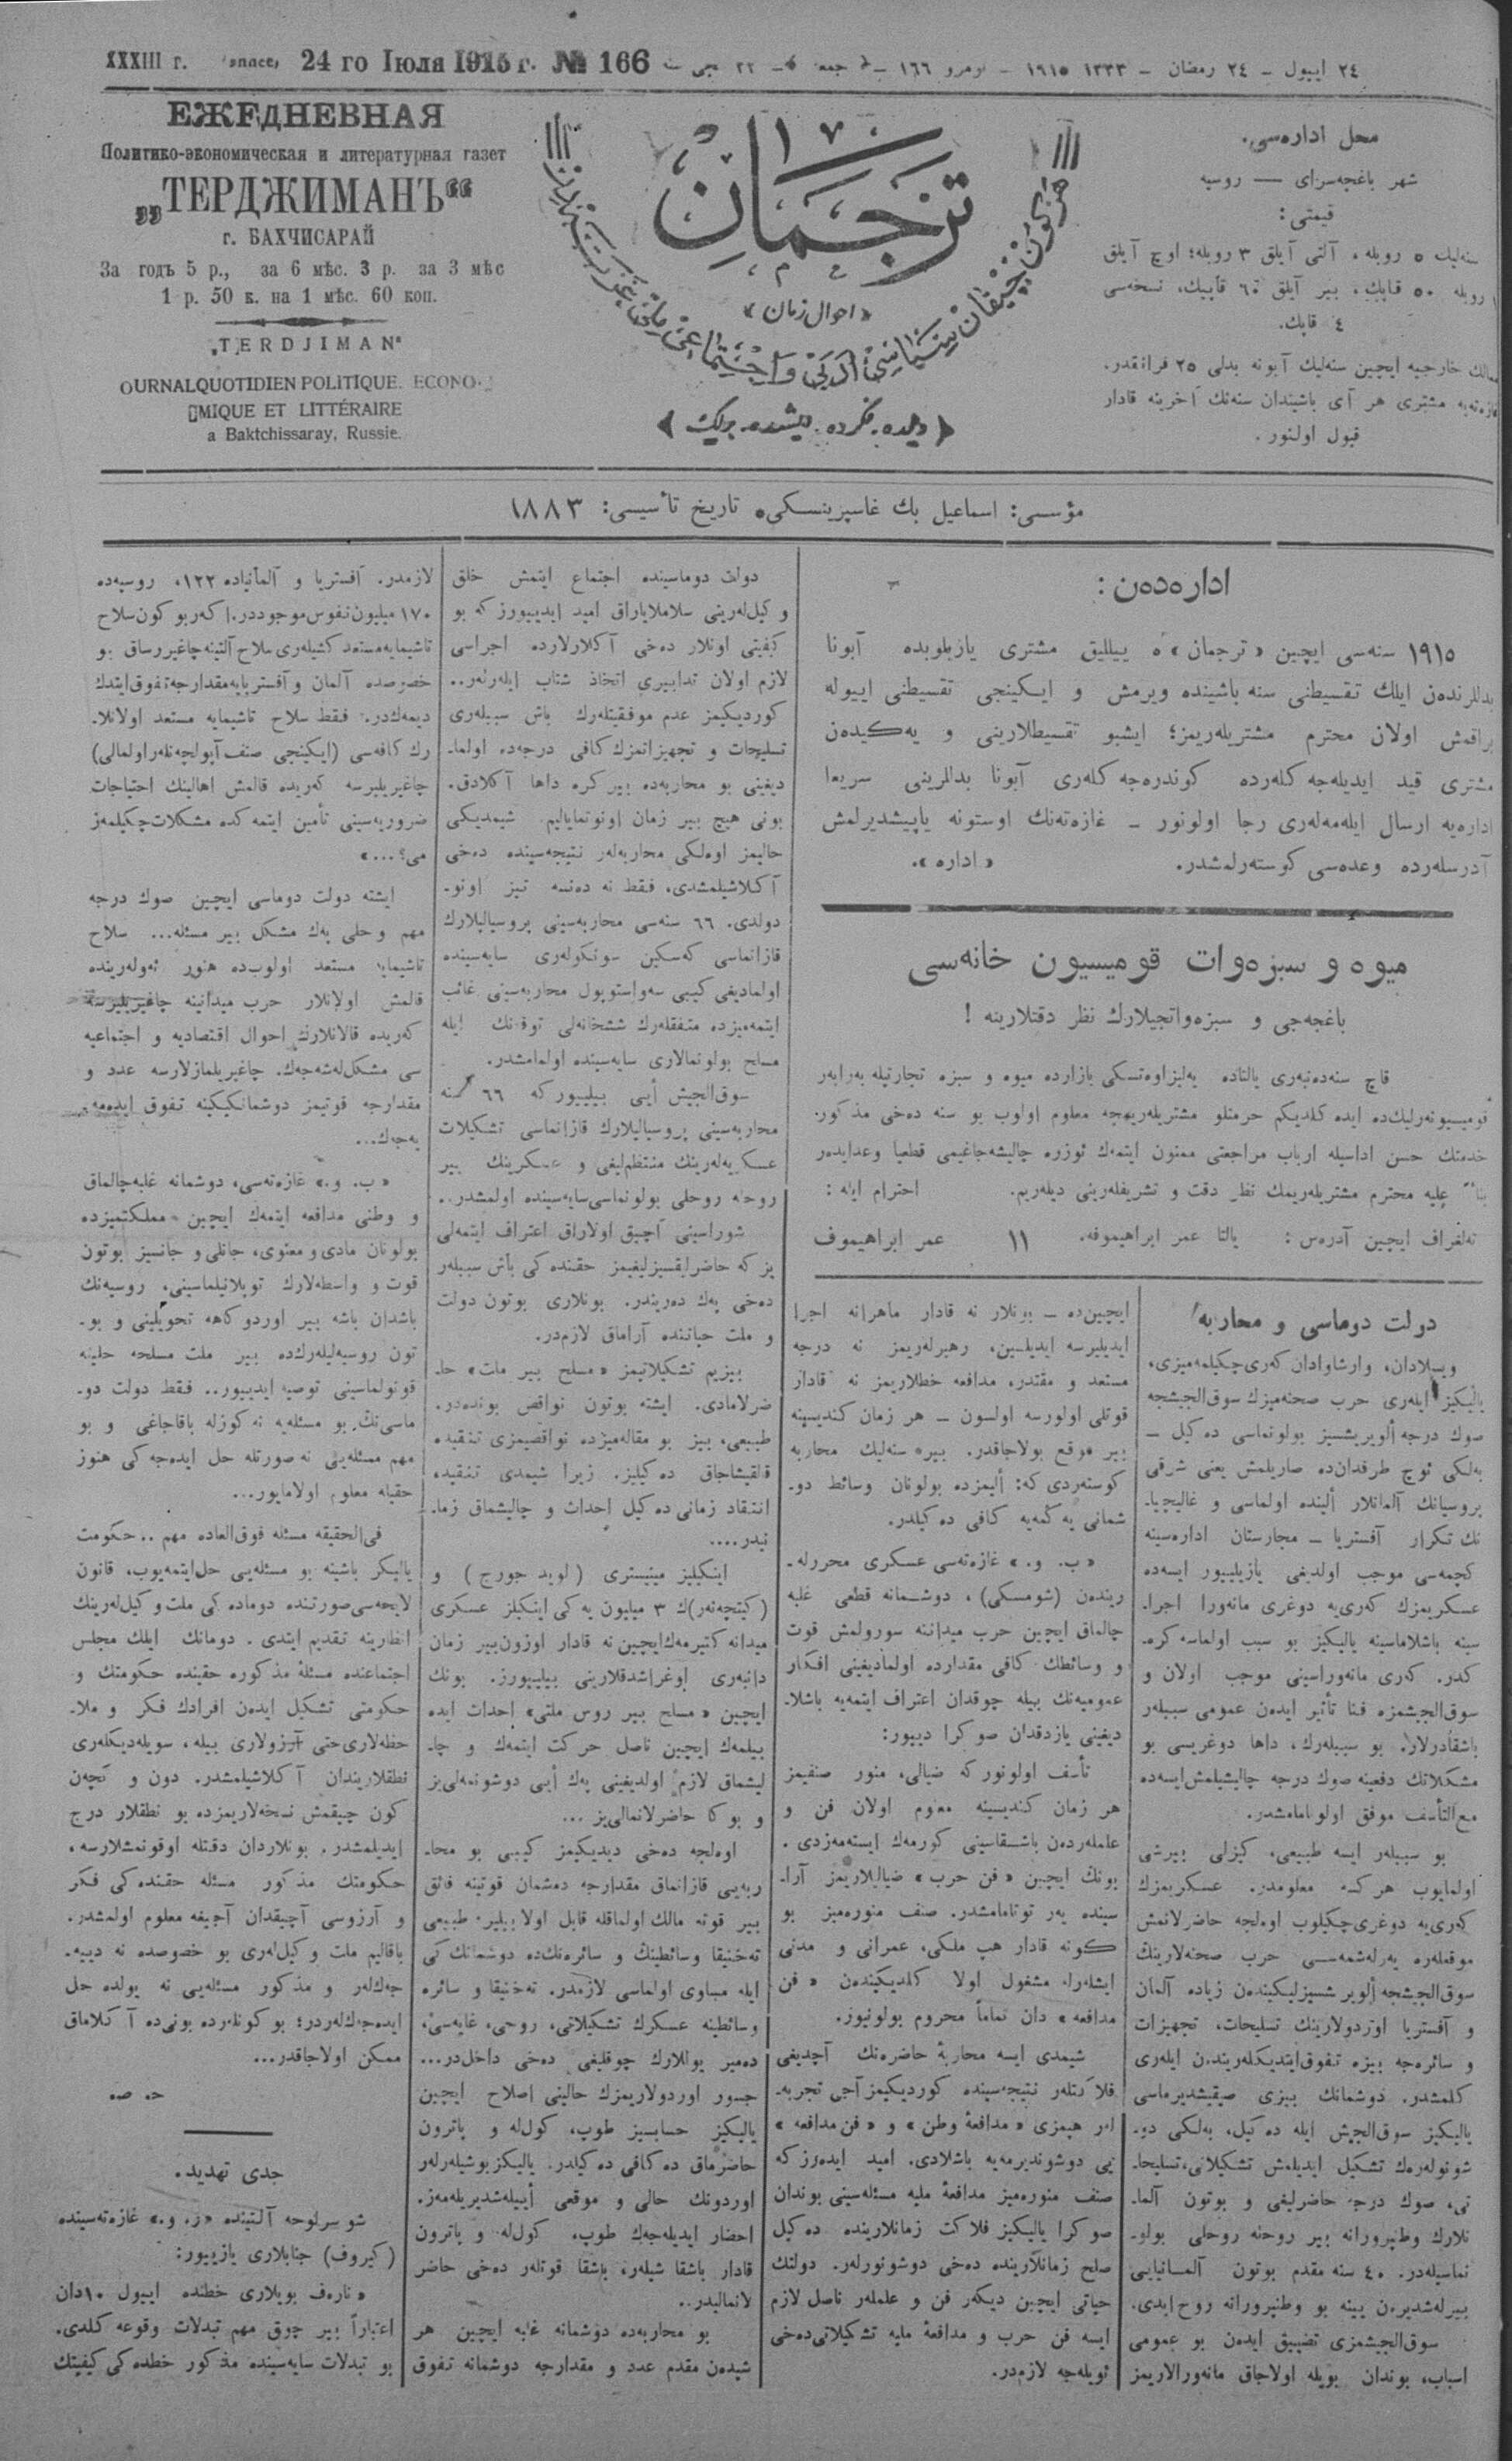 XXXIII г. 24 го Іюля 1915 г. № 166
٢٤ اییول ــ ٢٤ رمضان ــ ١٣٣٣ ١٩١٥ ــ نومرو ١٦٦
ЕЖЕДНЕВНАЯ
Политико-экономическая и литературная газет
„ТЕРДЖИМАНЪ“
г. БАХЧИСАРАЙ
За годъ 5 р., за 6 мѣс. 3 р. за 3 мѣс
1 р. 50 к. на 1 мѣс. 60 коп.
„TERDJIMAN“
OURNALQUOTIDIEN POLITIQUE. ECONO-
MIQUE ET LITTÉRAIRE
a Baktchissaray, Russie.
ترجمان
«احوال زمان»
«دلده، فكرده، ایشده، برلیك»
محل اداره‌سی.
شهر باغچه‌سرای — روسیه
قیمتی:
سنه‌لیك ٥ روبله، آلتی آیلق ٣ روبله؛ اوچ آیلق
١ روبله ٥٠ قاپك، بیر آیلق ٦٠ قاپیك، نسخه‌سی
٤ قاپك.
ممالك خارجیه ایچین سنه‌لیك آبونه بدلی ٢٥ فرانقدر.
غازه‌ته‌یه مشتری هر آی باشیندان سنه‌نك آخرینه قادار
قبول اولنور.
مؤسسی: اسماعیل بك غاسپرینسكی، تاریخ تأسیسی: ١٨٨٣
اداره‌دن:
١٩١٥ سنه‌سی ایچین «ترجمان»ه ییللیق مشتری یازیلوبده آبونا
بدللرندن ایلك تقسیطنی سنه باشینده ویرمش و ایكینجی تقسیطنی اییوله
براقمش اولان محترم مشتریله‌ریمز؛ ایشبو تقسیطلارینی و یه‌كیدن
مشتری قید ایدیله‌جه‌كله‌رده كوندره‌جه‌كله‌ری آبونا بدللرینی سریعا
اداره‌یه ارسال ایله‌مه‌له‌ری رجا اولونور ــ غازه‌ته‌نك اوستونه یاپیشدیرلمش
آدرسله‌رده وعده‌سی كوسته‌رلمشدر. «اداره».
میوه و سبزه‌وات قومیسیون خانه‌سی
باغچه‌جی و سبزه‌واتجیلارك نظر دقتلارینه !
قاچ سنه‌ده‌نبه‌ری یالتاده یه‌لیزاوه‌تسكی بازارده میوه و سبزه تجارتیله به‌رابه‌ر
قومیسیونه‌رلیك‌ده ایده كلدیكم حرمتلو مشتریله‌ریمجه معلوم اولوب بو سنه ده‌خی مذكور
خدمتك حسن اداسیله ارباب مراجعتی ممنون ایتمك ئوزره چالیشه‌جاغیمی قطعیا وعدایده‌ر
علیه محترم مشتریله‌ریمك نظر دقت و تشریفله‌رینی دیله‌ریم. احترام ایله:
ته‌لغراف ایچین آدره‌س: یالتا عمر ابراهیموفه. ١١ عمر ابراهیموف
دولت دوماسی و محاربه
ویسلادان، وارشاوادان كه‌ری چكیلمه‌میزی،
یالیكیز ایله‌ری حرب صحنه‌میزك سوق‌الجیشجه
صوك درجه ألویریشسیز بولونماسی ده‌كیل ــ
به‌لكی ئوچ طرفدان‌ده صاریلمش یعنی شرقی
پروسیانك آلمانلار ألینده اولماسی و غالیچیا-
نك تكرار آفستریا ــ مجارستان اداره‌سینه
كچمه‌سی موجب اولدیغی یازیلییور ایسه‌ده
عسكریمزك كه‌ری‌یه دوغری مانه‌ورا اجرا-
سینه باشلاماسینه یالیكیز بو سبب اولماسه كره-
كدر. كه‌ری مانه‌وراسینی موجب اولان و
سوق‌الجیشمزه فنا تأثیر ایده‌ن عمومی سببله‌ر
باشقادرلار. بو سببله‌رك، داها دوغریسی بو
مشكلاتك دفعینه صوك درجه چالیشیلمش‌ایسه‌ده
مع‌التأسف موفق اولونامامشدر.
بو سببله‌ر ایسه طبیعی، كیزلی بیرشی
اولمایوب هركسه معلومدر. عسكریمزك
كه‌ری‌یه دوغری چكیلوب اوه‌لجه حاضرلانمش
موقعله‌ره یه‌رله‌شمه‌سی حرب صحنه‌لارینك
سوق‌الجیشجه ألویرشسیزلیكیندن زیاده آلمان
و آفستریا اوردولارینك تسلیحات، تجهیزات
و سائره‌جه بیزه تفوق‌ایتدیكله‌ریندن ایله‌ری
كلمشدر. دوشمانك بیزی صیقیشدیرماسی
یالیكیز سوق‌الجیش ایله ده‌كیل، به‌لكی دو-
شونوله‌رك تشكیل ایدیلمش تشكیلاتی، تسلیحا-
تی، صوك درجه حاضرلیغی و بوتون آلما-
نلارك وطنپرورانه بیر روحنه روحلی بولو-
نماسیله‌در. ٤٠ سنه مقدم بوتون آلمانیایی
بیرله‌شدیره‌ن یینه بو وطنپرورانه روح ایدی.
سوق‌الجیشمزی تضییق ایدن بو عمومی
اسباب، بوندان بویله اولاجاق مانه‌ورالاریمز
ایچین‌ده ــ بونلار نه قادار ماهرانه اجرا
ایدیلیرسه ایدیلسین، رهبرله‌ریمز نه درجه
مستعد و مقتدر، مدافعه خطلاریمز نه قادار
قوتلی اولورسه اولسون ــ هر زمان كندیسینه
بیر موقع بولاجاقدر. بیر سنه‌لیك محاربه
كوسته‌ردی كه: ألیمزده بولونان وسائط دو-
شمانی یه‌كمه‌یه كافی ده‌كیلدر.
«ب. و.» غازه‌ته‌سی عسكری محررله-
ریندن (شومسكی)، دوشمانه قطعی غلبه
چالماق ایچین حرب میداننه سورولمش قوت
و وسائطك كافی مقدارده اولمادیغینی افكار
عمومیه‌نك بیله چوقدان اعتراف ایتمه‌یه باشلا-
دیغینی یازدقدان صوكرا دییور:
تأسف اولونور كه ضیالی، منور صنفیمز
هر زمان كندیسینه معلوم اولان فن و
علمله‌ردن باشقاسینی كورمه‌ك ایسته‌مه‌زدی.
بونك ایچین «فن حرب» ضیالیلاریمز آرا-
سینده یه‌ر توتامامشدر. صنف منوره‌میز بو
كونه قادار هپ ملكی، عمرانی و مدنی
ایشله‌رله مشغول اولا كلدیكیندن «فن
مدافعه» دان تماماً محروم بولونیور.
شیمدی ایسه محاربهٔ حاضره‌نك آچدیغی
فلاكتلر نتیجه‌سینده كوردیكیمز آجی تجربه-
لر هپمزی «مدافعهٔ وطن» و «فن مدافعه»
یی دوشوندیرمه‌یه باشلادی. امید ایده‌رز كه
صنف منوره‌میز مدافعهٔ ملیه مسئله‌سینی بوندان
صوكرا یالیكیز فلاكت زمانلارینده ده‌كیل
صلح زمانلارینده ده‌خی دوشونورله‌ر. دولتك
حیاتی ایچین دیكه‌ر فن و علمله‌ر ناصل لازم
ایسه فن حرب و مدافعهٔ ملیه تشكیلاتی‌ده‌خی
ئویله‌جه لازم‌در.
دولت دوماسینده اجتماع ایتمش خلق
وكیل‌له‌رینی سلاملایاراق امید ایدییورز كه بو
كیفیتی اونلار ده‌خی آكلارلارده اجراسی
لازم اولان تدابیری اتخاذ شتاب ایله‌رله‌ر..
كوردیكیمز عدم موفقیتله‌رك باش سببله‌ری
تسلیحات و تجهیزاتمزك كافی درجه‌ده اولما-
دیغینی بو محاربه‌ده بیر كره داها آكلادق.
بونی هیچ بیر زمان اونوتمایالیم. شیمدیكی
حالیمز اوه‌لكی محاربه‌له‌ر نتیجه‌سینده ده‌خی
آكلاشیلمشدی، فقط نه ده‌نسه تیز اونو-
دولدی. ٦٦ سنه‌سی محاربه‌سینی پروسیالیلارك
قازانماسی كه‌سكین سونكوله‌ری سایه‌سینده
اولمادیغی كیبی سه‌واستوپول محاربه‌سینی غائب
ایتمه‌میزده متفقله‌رك ششخانه‌لی توفنك ایله
مسلح بولونمالاری سایه‌سینده اولمامشدر.
سوق‌الجیش أیی بیلییور كه ٦٦ سنه
محاربه‌سینی پروسیالیلارك قازانماسی تشكیلات
عسكریه‌له‌رینك منتظم‌لیغی و عسكرینك بیر
روحله روحلی بولونماسی‌سایه‌سینده اولمشدر..
شوراسینی آچیق اولاراق اعتراف ایتمه‌لی
یز كه حاضرلیقسیزلیغیمز حقنده‌كی باش سببله‌ر
ده‌خی یه‌ك ده‌ریندر. بونلاری بوتون دولت
و ملت حیاتنده آراماق لازم‌در.
بیزیم تشكیلاتیمز «مسلح بیر ملت» حا-
ضرلامادی. ایشته بوتون نواقص بونده‌در.
طبیعی، بیز بو مقاله‌میزده نواقصیمزی تنقیده
قالقیشاجاق ده‌كیلیز. زیرا شیمدی تنقیده
انتقاد زمانی ده‌كیل احداث و چالیشماق زما-
نیدر....
اینكیلیز مینیستری (لوید جورج) و
(كیتچه‌نه‌ر)ك ٣ میلیون یه‌كی اینكیلز عسكری
میدانه كتیرمه‌ك‌ایچین نه قادار اوزون‌بیر زمان
دانبه‌ری اوغراشدقلارینی بیلییورز. بونك
ایچین «مسلح بیر روس ملتی» احداث ایده
بیلمه‌ك ایچین ناصل حركت ایتمه‌ك و چا-
لیشماق لازم اولدیغینی یه‌ك أیی دوشونمه‌لی‌یز
و بوكا حاضرلانمالی‌یز ...
اوه‌لجه ده‌خی دیدیكیمز كیبی بو محا-
ربه‌یی قازانماق مقدارجه دوشمان قوتینه فائق
بیر قوته مالك اولماقله قابل اولا بیلیر. طبیعی
ته‌خنیقا وسائطینك و سائره‌نك‌ده دوشمانك كی
ایله مساوی اولماسی لازمدر. ته‌خنیقا و سائره
وسائطینه عسكرك تشكیلاتی، روحی، غایه‌سی،
ده‌میر یوللارك چوقلیغی ده‌خی داخل‌در...
جسور اوردولاریمزك حالینی اصلاح ایچین
یالیكیز حسابسیز طوپ، كول‌له و پاترون
حاضرماق ده كافی ده‌كیلدر. یالیكز بوشیله‌رله‌ر
اوردونك حالی و موقعی أییله‌شدیریله‌مه‌ز.
احضار ایدیله‌جك طوپ، كول‌له و پاترون
قادار باشقا شیله‌ر، باشقا قوتله‌ر ده‌خی حاضر
لانمالیدر..
بو محاربه‌ده دوشمانه غلبه ایچین هر
شیدن مقدم عدد و مقدارجه دوشمانه تفوق
لازمدر. آفستریا و آلمانیاده ١٢٢، روسیه‌ده
١٧٠ میلیون نفوس موجوددر. اكه‌ر بو كون سلاح
تاشیمایه‌مستعد كشیله‌ری‌سلاح آلتینه‌چاغیررساق بو
خصوصده آلمان و آفستریایه‌مقدارجه‌تفوق‌ایتدك
دیمه‌كدر. فقط سلاح تاشیمایه مستعد اولانلا-
رك كافه‌سی (ایكینجی صنف آبولچه‌نله‌ر اولمالی)
چاغیریلیرسه كه‌ریده قالمش اهالینك احتیاجات
ضروریه‌سینی تأمین ایتمه‌كده مشكلات‌چكیلمه‌ز
می؟...»
ایشته دولت دوماسی ایچین صوك درجه
مهم وحلی یه‌ك مشكل بیر مسئله... سلاح
تاشیمایه مستعد اولوب‌ده هنوز ئه‌وله‌رینده
قالمش اولانلار حرب میدانینه چاغیریلیرسه
كه‌ریده قالانلارك احوال اقتصادیه و اجتماعیه
سی مشكل‌له‌شه‌جه‌ك. چاغیریلمازلارسه عدد و
مقدارجه قوتیمز دوشمانكیكینه تفوق ایده‌مه-
یه‌جه‌ك...
«ب. و.» غازه‌ته‌سی، دوشمانه غلبه‌چالماق
و وطنی مدافعه ایتمه‌ك ایچین مملكتمیزده
بولونان مادی و معنوی، جانلی و جانسیز بوتون
قوت و واسطه‌لارك توپلانیلماسینی، روسیه‌نك
باشدان باشه بیر اوردوكاهه تحویلینی و بو-
تون روسیه‌لیله‌رك‌ده بیر ملت مسلحه حلینه
قونولماسینی توصیه ایدییور.. فقط دولت دو-
ماسی‌نك بو مسئله‌یه نه كوزله باقاجاغی و بو
مهم مسئله‌یی نه صورتله حل ایده‌جه‌كی هنوز
حقیله معلوم اولامایور...
فی‌الحقیقه مسئله فوق‌العاده مهم.. حكومت
یالیكز باشینه بو مسئله‌یی حل‌ایتمه‌یوب، قانون
لایحه‌سی‌صورتنده دوماده‌كی ملت وكیل‌له‌رینك
انظارینه تقدیم ایتدی. دومانك ایلك مجلس
اجتماعنده مسئلهٔ مذكوره حقینده حكومتك و
حكومتی تشكیل ایده‌ن افرادك فكر و ملا-
حظه‌لاری‌حتی آرزولاری بیله، سویله‌دیكله‌ری
نطقلاریندان آكلاشیلمشدر. دون و كچه‌ن
كون چیقمش نسخه‌لاریمزده بو نطقلار درج
ایدیلمشدر. بونلاردان دقتله اوقونمشلارسه،
حكومتك مذكور مسئله حقنده‌كی فكر
و آرزوسی آچیقدان آچیغه معلوم اولمشدر.
باقالیم ملت وكیل‌له‌ری بو خصوصده نه دییه-
جه‌كله‌ر و مذكور مسئله‌یی نه یولده حل
ایده‌جه‌كله‌ردر؛ بو كونله‌رده بونی‌ده آكلاماق
ممكن اولاجاقدر...
ح. ص.
جدی تهدید.
شو سرلوحه آلتینده «ز. و.» غازه‌ته‌سینده
(كیروف) جنابلاری یازییور:
«ناره‌ف بویلاری خطنده اییول ١٠دان
اعتباراً بیر چوق مهم تبدلات وقوعه كلدی.
بو تبدلات سایه‌سینده مذكور خطده‌كی كیفیتك